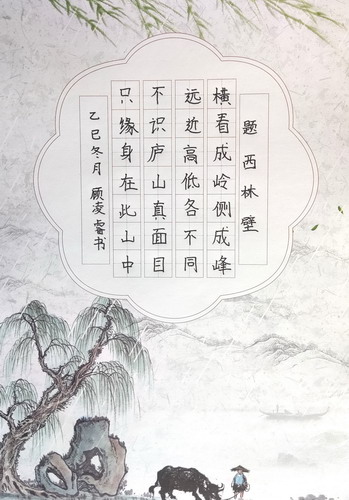 题西林壁
横看成岭侧成峰
远近高低各不同
不识庐山真面目
只缘身在此山中
乙巳冬月 顾凌睿书